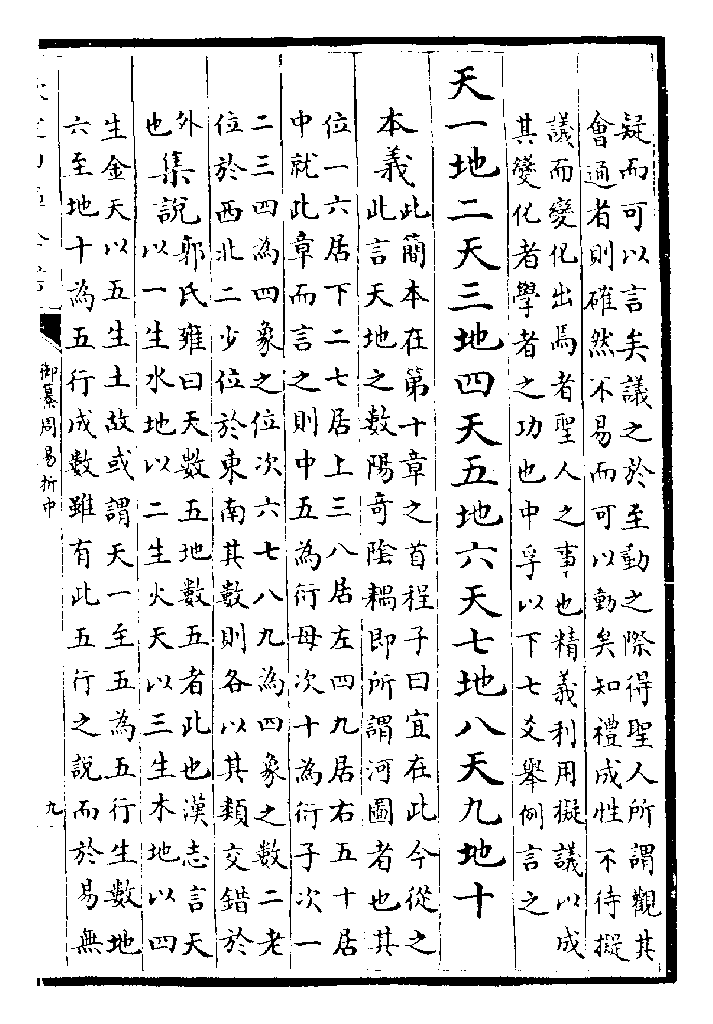 疑而可以言矣議之於至動之際得聖人所謂觀其
會通者則確然不易而可以動矣知禮成性不待擬
議而變化出焉者聖人之事也精義利用擬議以成
其變化者學者之功也中孚以下七爻舉例言之
天一地二天三地四天五地六天七地八天九地十
本義此簡本在第十章之首程子曰宜在此今從之
此言天地之數陽奇陰耦即所謂河圖者也其
位一六居下二七居上三八居左四九居右五十居
中就此章而言之則中五為衍母次十為衍子次一
二三四為四象之位次六七八九為四象之數二老
位於西北二少位於東南其數則各以其類交錯於
外
也
集說郭氏雍曰天數五地數五者此也漢志言天
以一生水地以二生火天以三生木地以四
生金天以五生土故或謂天一至五為五行生數地
六至地十為五行成數雖有此五行之說而於易無
御纂周易折中
九